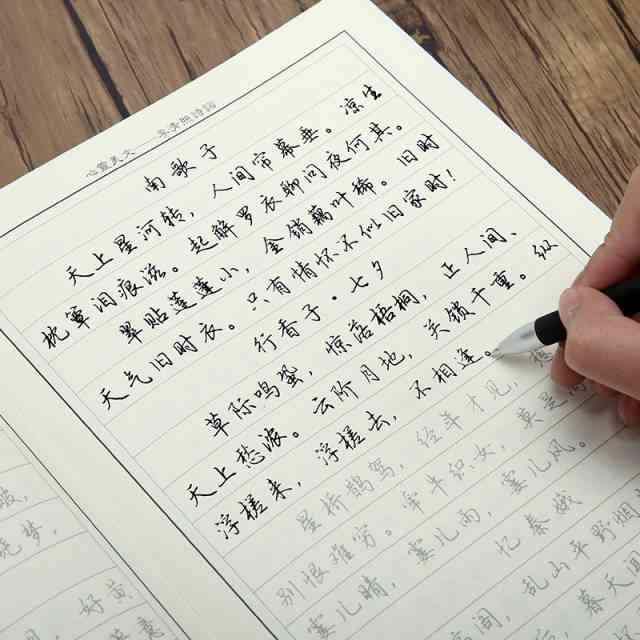 心灵美文——李清照诗词
南歌子
天上星河转，人间帘幕垂。凉生
枕簟泪痕滋。起解罗衣聊问夜何其。
翠贴莲蓬小，金销藕叶稀。旧时
天气旧时衣。只有情怀不似旧家时！
行香子·七夕
草际鸣蛩，惊落梧桐，正人间、
天上愁浓。云阶月地，关锁千重。纵
浮槎来，浮槎去，不相逢。
星桥鹊驾，经年才见，想
别恨难穷。牵牛织女，莫是
霎儿晴，霎儿雨，霎儿风。
忆秦娥
乱山平野烟
春天
好黄